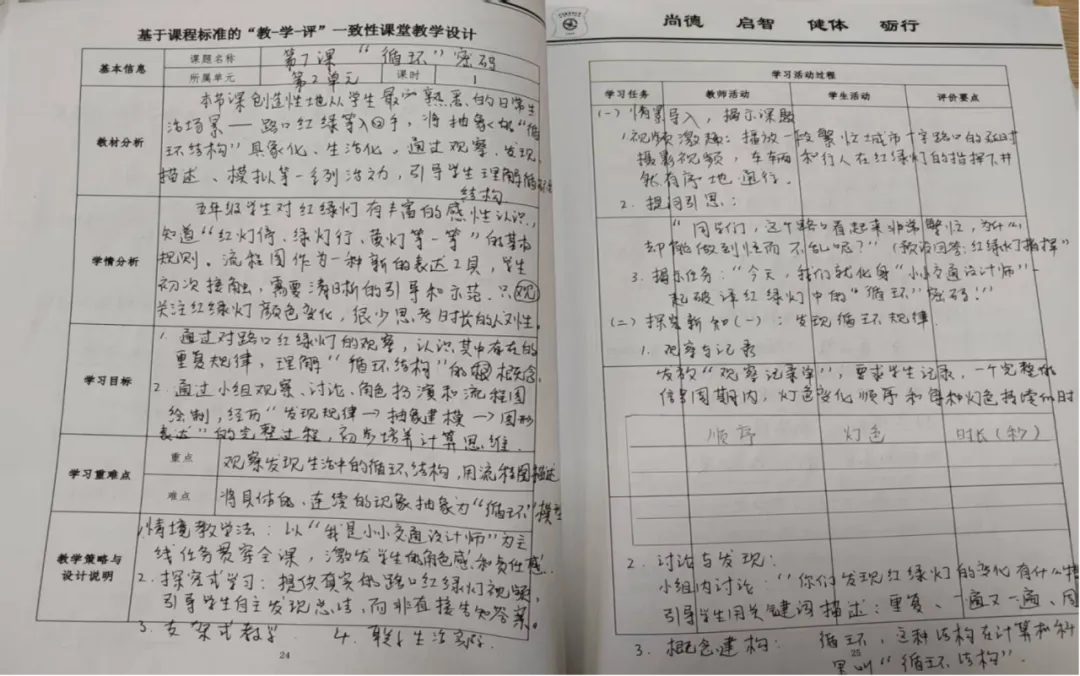 基于课程标准的“教-学-评”一致性课堂教学设计
基本信息
课题名称 第7课 “循环”密码
所属单元 第2单元 课时 1
教材分析
本节课创造性地从学生最 熟悉的日常生
活场景——路口红绿等入手，将抽象 “循
环结构”具象化、生活化。通过观察、发现、
描述、模拟等一系列活动，引导学生理解循环
结构
学情分析
五年级学生对红绿灯有丰富的感性认识，
知道“红灯停、绿灯行、黄灯等一等”的基本
规则。流程图作为一种新的表达工具，学生
初次接触，需要清晰的引导和示范。只观
关注红绿灯颜色变化，很少思考时长的 性。
学习目标
1. 通过对路口红绿灯的观察，认识其中存在的
重复规律，理解“循环结构”的 概念。
2. 通过小组观察、讨论、角色扮演和流程图
绘制，经历“发现规律→抽象建模→图形
表达”的完整过程，初步培养计算思维.
学习重难点
重点 观察发现生活中的循环结构，用流程图描述
难点 将具体的、连续的现象抽象为“循环”模型
教学策略与
设计说明
1.情境教学法：以“我是小小交通设计师”为主
线任务贯穿全课，激发学生的角色感和责任感.
2. 探究式学习：提供真实的路口红绿灯视频，
引导学生自主发现总结，而非直接告知答案。
3. 支架式教学 4. 联系生活实际
24
尚德 启智 健体 砺行
学习活动过程
学习任务 教师活动 学生活动 评价要点
(一) 情景导入，揭示课题
1.视频激趣：播放一段繁忙城市十字路口的延时
摄影视频，车辆和行人在红绿灯的指挥下井
然有序地通行。
2. 提问引思：
“同学们，这个路口看起来非常繁忙，为什么
却能做到忙而不乱呢？”（预设回答：红绿灯指挥”
3. 揭示任务：“今天，我们就化身“小小交通设计师”一
起破译红绿灯中的“循环”密码！”
(二) 探究新知(一)：发现循环规律.
1. 观察与记录
发放“观察记录单”，要求学生记录，一个完整的
信号周期内，灯色变化顺序和每种灯色持续的时
顺序 灯色 时长(秒)
2. 讨论与发现：
小组内讨论：“你们发现红绿灯的变化有什么特
引导学生用关键词描述：重复、一遍又一遍、周
3. 概念建构： 循环，这种结构在计算机科
25
里叫“循环结构”.